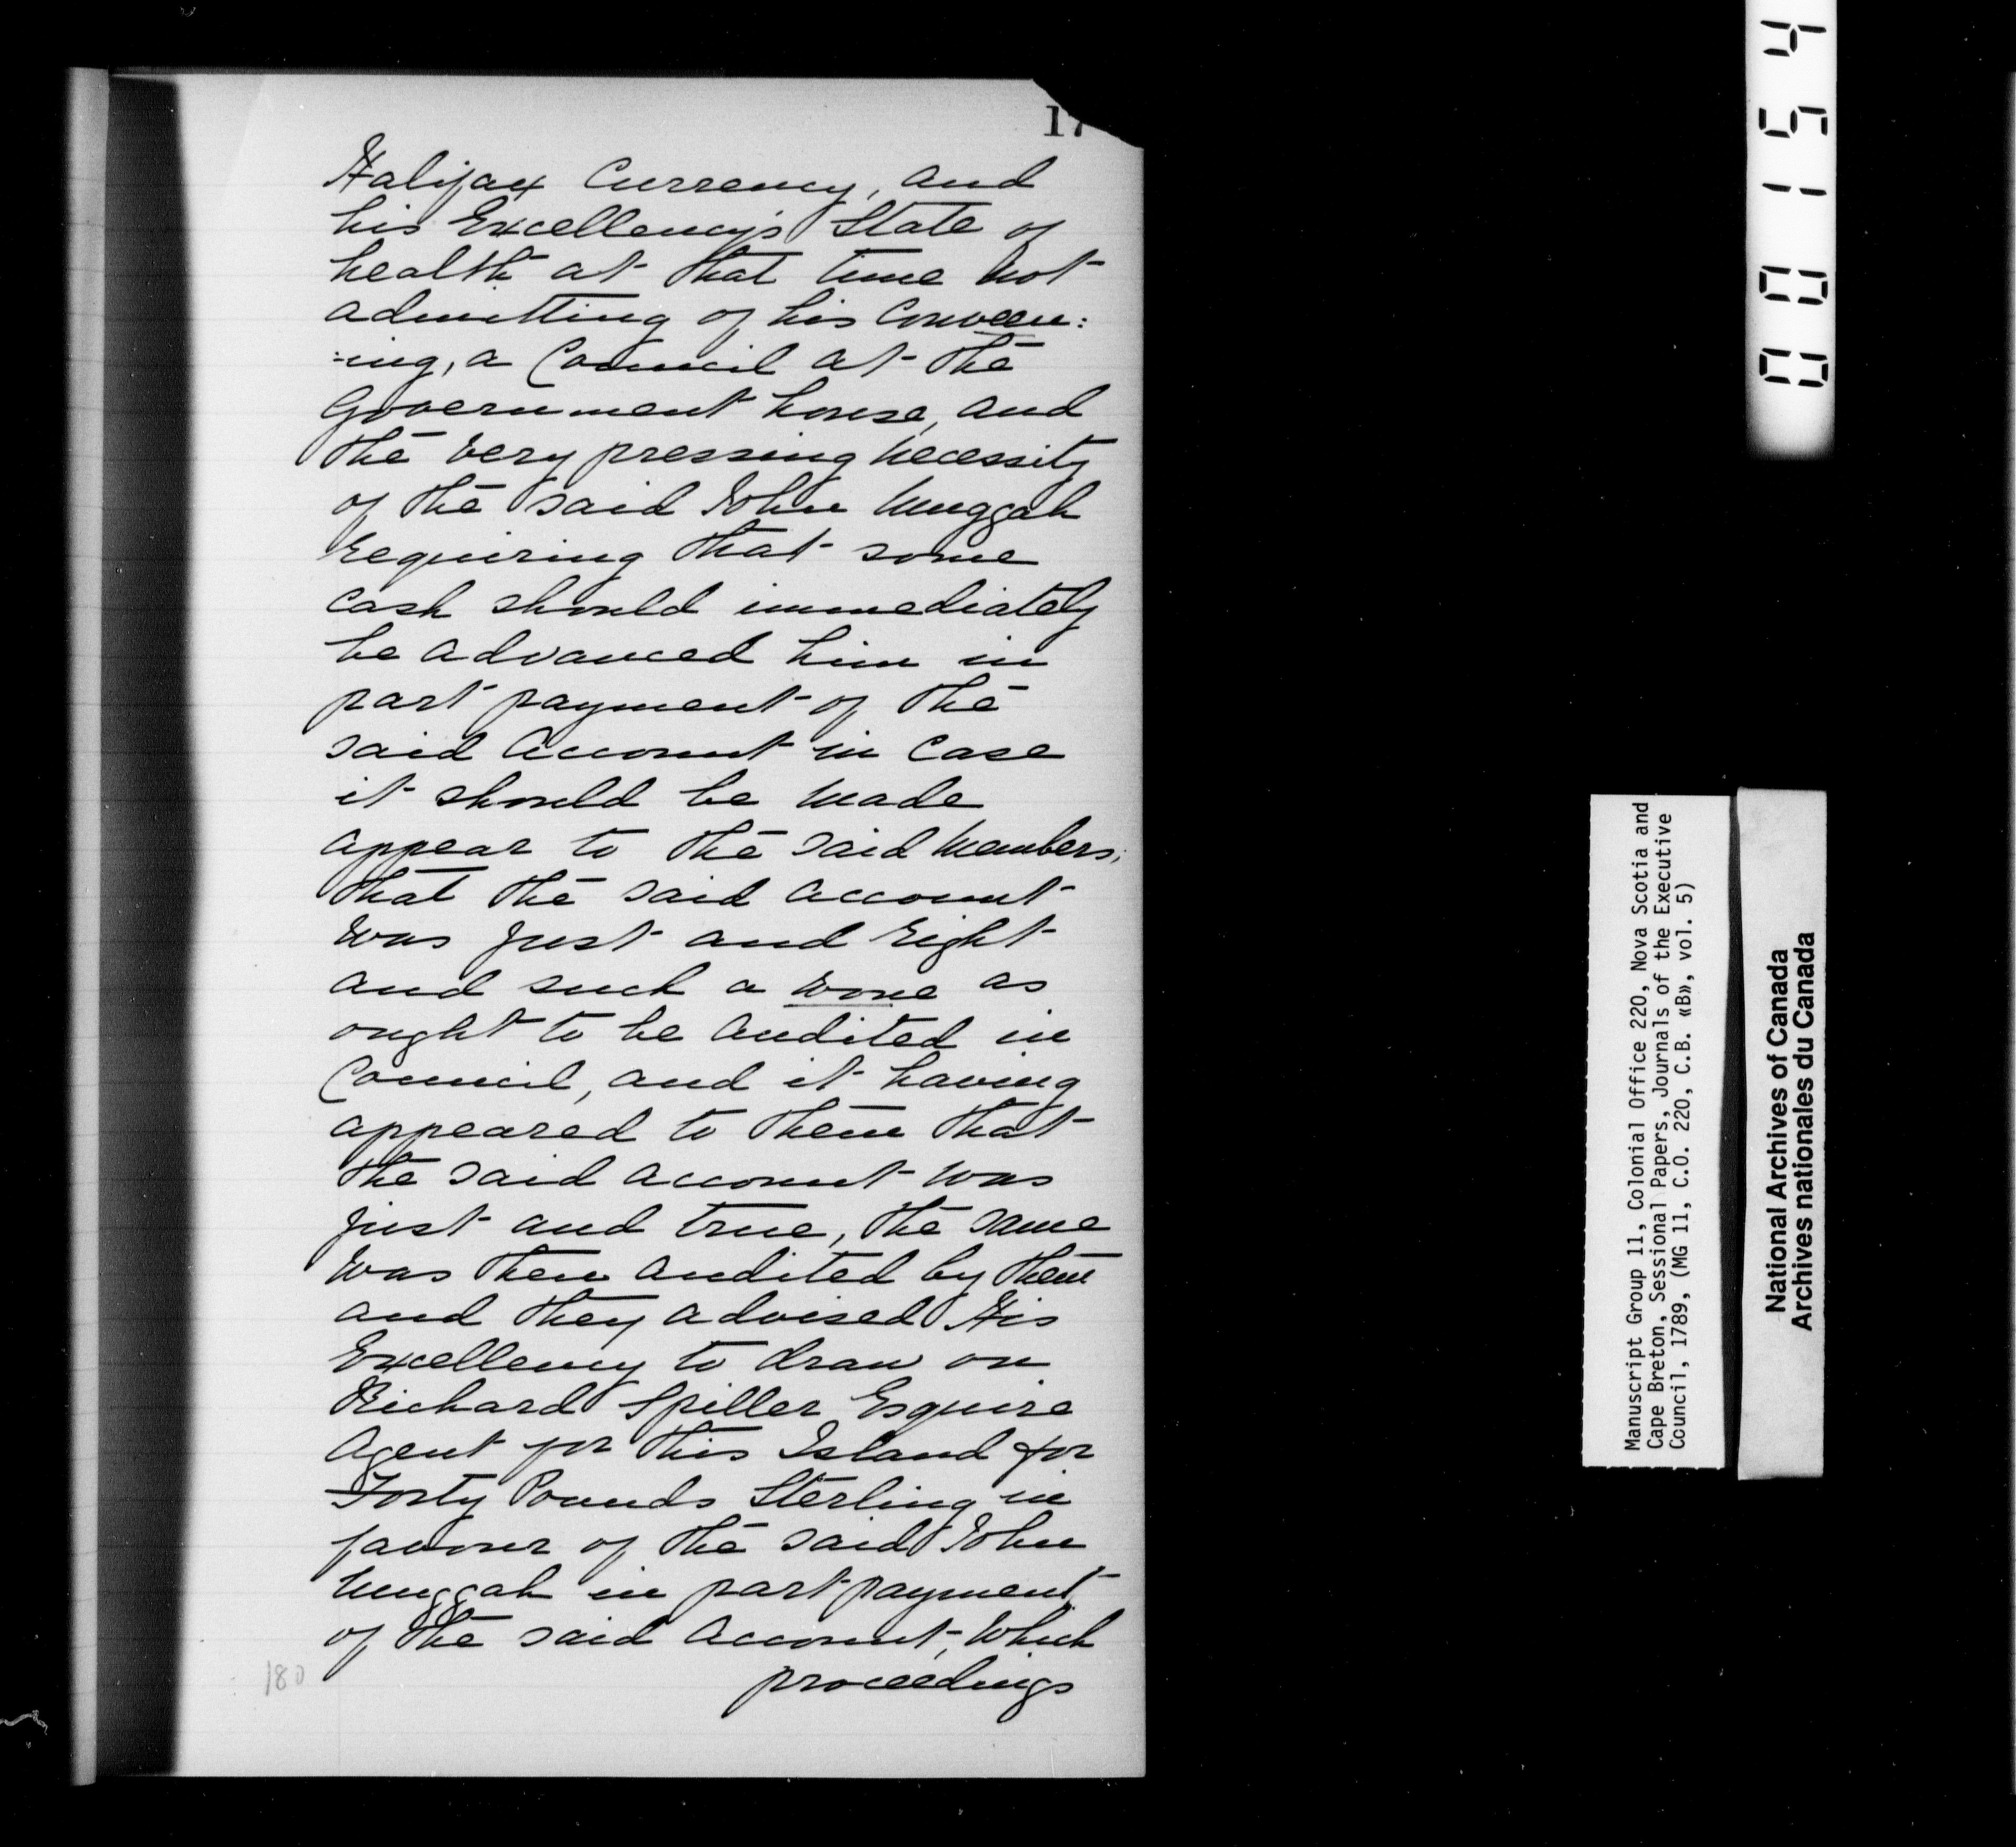 17
Halifax Currency, and
his Excellency's State of
health at that time not
admitting of his Conveen:
:ing, a Council at the
Government house, and
the very pressing necessity
of the said John Muggah
requiring that some
cash should immediately
be advanced him in
part payment of the
said account in case
it should be made
appear to the said Members,
that the said account
was just and right
and such a wone as
ought to be audited in
Council, and it having
appeared to them that
the said account was
just and true, the same
was then audited by them
and they advised His
Excellency to draw on
Richard Spiller Esquire
Agent for this Island for
Forty Pounds Sterling in
favour of the said John
Muggah in part payment
of the said account, which
proceedings
180
00154
Manuscript Group 11, Colonial Office 220, Nova Scotia and
Cape Breton, Sessional Papers, Journals of the Executive
Council, 1789, (MG 11, C.O. 220, C.B. «B», vol. 5)
National Archives of Canada
Archives nationales du Canada